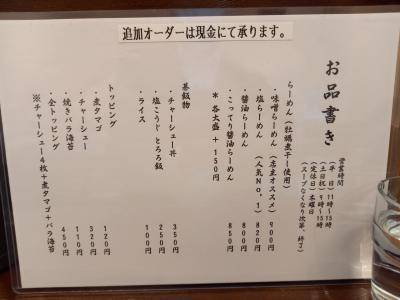 追加オーダーは現金にて承ります。
お品書き
営業時間
(平 日) 11時～15時
(土日祝) 9時～15時
(定休日) 木曜日
(スープなくなり次第、終了)
らーめん (牡蠣煮干し使用)
・味噌らーめん (店主オススメ) 900円
・塩らーめん (人気No.1) 820円
・醤油らーめん 800円
・こってり醤油らーめん 850円
* 各大盛 + 150円
御飯物
・チャーシュー丼 350円
・塩こうじ とろろ飯 250円
・ライス 100円
トッピング
・煮タマゴ 120円
・チャーシュー 320円
・焼きバラ海苔 110円
・全トッピング 450円
※チャーシュー4枚+煮タマゴ+バラ海苔